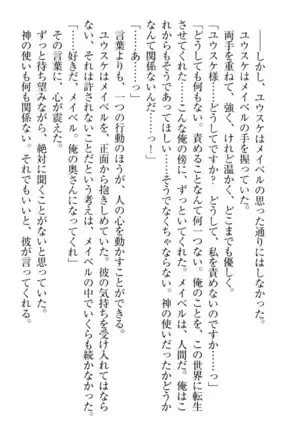 ――しかし、ユウスケはメイベルの思った通りにはしなかった。
ユウスケはメイベルの手を握っていた。
両手を重ねて、強く、けれど温かく、どこまでも優しく。
「ユウスケ様……どうしてですか？　どうして、私を責めないのですっ」
「どうしても何もない。責めることなんて何一つない。俺のことを、この世界に転生
させてくれた……こんな俺の傍に、ずっといてくれた。メイベルは、人間だ。俺はこ
れからもそうであってほしい……そうでなくちゃならない。神の使いだったかどうか
なんて関係ないんだ……っ！」
「……あ……っ」
言葉よりも、一つの行動のほうが、人の心を動かすことができる。
ユウスケはメイベルを、正面から抱きしめていた。彼の気持ちを受け入れてはなら
ない、それは許されないことだという考えは、メイベルの中でいくらも続かなかった。
「……好きだ、メイベル。俺の奥さんになってくれ」
その言葉に、心が震えた。
ずっと待ち望みながら、絶対に聞くことがないと思っていた。
神の使いも何も関係ない。それでもいいと、彼が言ってくれる。